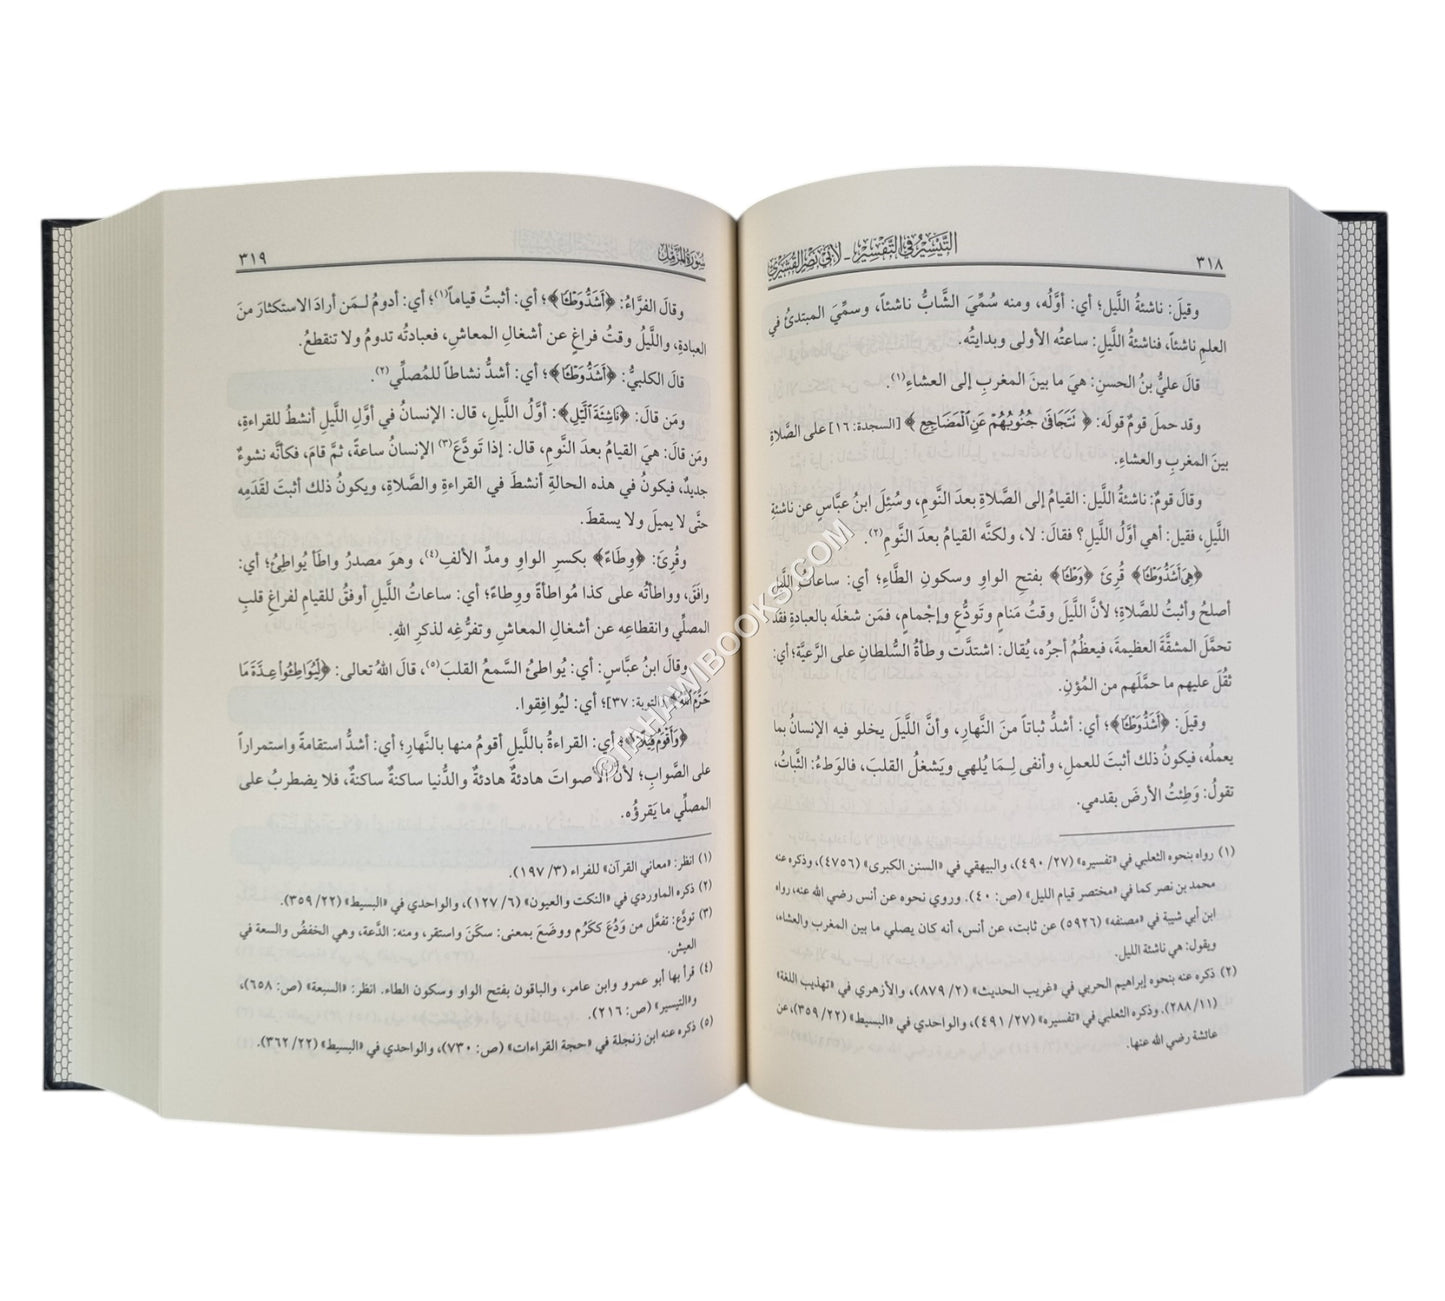 ٣١٨
التَّيْسِيرُ فِي التَّفْسِيرِ - لِأَبِي نَصْرٍ القُشَيْرِيِّ
وقيلَ: ناشئةُ اللَّيل؛ أي: أوَّلُه، ومنه سُمِّيَ الشَّابُّ ناشئاً، وسمِّيَ المبتدئُ في
العلمِ ناشئاً، فناشئةُ اللَّيلِ: ساعتُه الأولى وبدايتُه.
قالَ عليُّ بنُ الحسنِ: هيَ ما بينَ المغربِ إلى العشاءِ(١).
وقد حملَ قومٌ قولَه: ﴿نَتَجَافَىٰ جُنُوبُهُمْ عَنِ ٱلْمَضَاجِعِ﴾ [السجدة: ١٦] على الصَّلاةِ
بينَ المغربِ والعشاءِ.
وقالَ قومٌ: ناشئةُ اللَّيل: القيامُ إلى الصَّلاةِ بعدَ النَّومِ، وسُئِلَ ابنُ عبَّاسٍ عن ناشئةِ
اللَّيلِ، فقيل: أهي أوَّلُ اللَّيل؟ فقالَ: لا، ولكنَّه القيامُ بعدَ النَّومِ(٢).
﴿هِىَ أَشَدُّ وَطْـًٔا﴾ قُرِئَ ﴿وَطْـًٔا﴾ بفتحِ الواوِ وسكونِ الطَّاءِ؛ أي: ساعاتُ اللَّيلِ
أصلحُ وأثبتُ للصَّلاةِ؛ لأنَّ اللَّيلَ وقتُ مَنامٍ وتَودُّعٍ وإجْمامٍ، فمَن شغلَه بالعبادةِ فقد
تحمَّلَ المشقَّةَ العظيمةَ، فيعظُمُ أجرُه، يُقال: اشتدَّت وطأةُ السُّلطانِ على الرَّعيَّةِ؛ أي:
ثقُلَ عليهم ما حمَّلَهم من المُؤنِ.
وقيلَ: ﴿أَشَدُّ وَطْـًٔا﴾؛ أي: أشدُّ ثباتاً منَ النَّهارِ، وأنَّ اللَّيلَ يخلو فيه الإنسانُ بما
يعملُه، فيكونُ ذلك أثبتَ للعملِ، وأنفى لِـمَا يُلهي ويَشغلُ القلبَ، فالوَطءُ: الثَّباتُ،
تقولُ: وَطِئتُ الأرضَ بقدمي.
(١) رواه بنحوه الثعلبي في «تفسيره» (٢٧/ ٤٩٠)، والبيهقي في «السنن الكبرى» (٤٧٥٦)، وذكره عنه
محمد بن نصر كما في «مختصر قيام الليل» (ص: ٤٠). وروي نحوه عن أنس رضي الله عنه، رواه
ابن أبي شيبة في «مصنفه» (٥٩٢٦) عن ثابت، عن أنس، أنه كان يصلي ما بين المغرب والعشاء،
ويقول: هي ناشئة الليل.
(٢) ذكره عنه بنحوه إبراهيم الحربي في «غريب الحديث» (٢/ ٨٧٩)، والأزهري في «تهذيب اللغة»
(١١/ ٢٨٨). وذكره الثعلبي في «تفسيره» (٢٧/ ٤٩١)، والواحدي في «البسيط» (٢٢/ ٣٥٩)، عن
عائشة رضي الله عنها.
سُورَةُ المُزَّمِّلِ
٣١٩
وقالَ الفرَّاءُ: ﴿أَشَدُّ وَطْـًٔا﴾؛ أي: أثبتُ قياماً(١)؛ أي: أدومُ لـمَن أرادَ الاستكثارَ منَ
العبادةِ، واللَّيلُ وقتُ فراغٍ عن أشغالِ المعاشِ، فعبادتُه تدومُ ولا تنقطعُ.
قالَ الكلبيُّ: ﴿أَشَدُّ وَطْـًٔا﴾؛ أي: أشدُّ نشاطاً للمُصلِّي(٢).
ومَن قالَ: ﴿نَاشِئَةَ ٱلَّيْلِ﴾: أوَّلُ اللَّيلِ، قال: الإنسانُ في أوَّلِ اللَّيلِ أنشطُ للقراءةِ،
ومَن قالَ: هيَ القيامُ بعدَ النَّومِ، قال: إذا تَودَّعَ(٣) الإنسانُ ساعةً، ثمَّ قامَ، فكأنَّه نشوءٌ
جديدٌ، فيكونُ في هذه الحالةِ أنشطَ في القراءةِ والصَّلاةِ، ويكونُ ذلك أثبتَ لقَدَمِه
حتَّى لا يميلَ ولا يسقطَ.
وقُرِئَ: ﴿وِطَاءً﴾ بكسرِ الواوِ ومدِّ الألفِ(٤)، وهوَ مصدرُ واطَأَ يُواطِئُ؛ أي:
وافقَ، وواطأتُه على كذا مُواطأةً ووِطاءً؛ أي: ساعاتُ اللَّيلِ أوفقُ للقيامِ لفراغِ قلبِ
المصلِّي وانقطاعِه عن أشغالِ المعاشِ وتفرُّغِه لذكرِ اللهِ.
وقالَ ابنُ عبَّاسٍ: أي: يُواطئُ السَّمعُ القلبَ(٥)، قالَ اللهُ تعالى: ﴿لِّيُوَاطِـُٔوا۟ عِدَّةَ مَا
حَرَّمَ ٱللَّهُ﴾ [التوبة: ٣٧]؛ أي: ليُوافِقوا.
﴿وَأَقْوَمُ قِيلًا﴾؛ أي: القراءةُ باللَّيلِ أقومُ منها بالنَّهارِ؛ أي: أشدُّ استقامةً واستمراراً
على الصَّوابِ؛ لأنَّ الأصواتَ هادئةٌ هادئةٌ والدُّنيا ساكنةٌ ساكنةٌ، فلا يضطربُ على
المصلِّي ما يَقرؤُه.
(١) انظر: «معاني القرآن» للفراء (٣/ ١٩٧).
(٢) ذكره الماوردي في «النكت والعيون» (٦/ ١٢٧)، والواحدي في «البسيط» (٢٢/ ٣٥٩).
(٣) تودُّع: تفعَّل من وَدُعَ ككَرُم ووضَعَ بمعنى: سكَنَ واستقر، ومنه: الدَّعة، وهي الخفضُ والسعة في
العيش.
(٤) قرأ بها أبو عمرو وابن عامر، والباقون بفتح الواو وسكون الطاء. انظر: «السبعة» (ص: ٦٥٨)،
و«التيسير» (ص: ٢١٦).
(٥) ذكره عنه ابن زنجلة في «حجة القراءات» (ص: ٧٣٠)، والواحدي في «البسيط» (٢٢/ ٣٦٢).
©TAHAWIBOOKS.COM